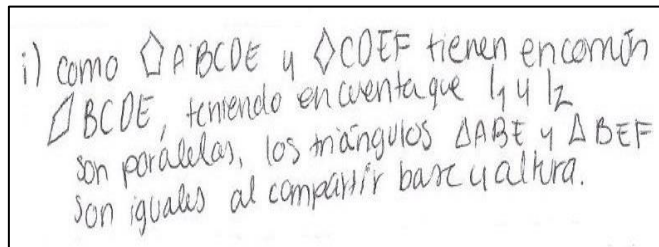 i) como ⬠ABCDE y ◇CDEF tienen en común
▱BCDE, teniendo en cuenta que l₁ y l₂
son paralelas, los triángulos ΔABE y ΔBEF
son iguales al compartir base y altura.